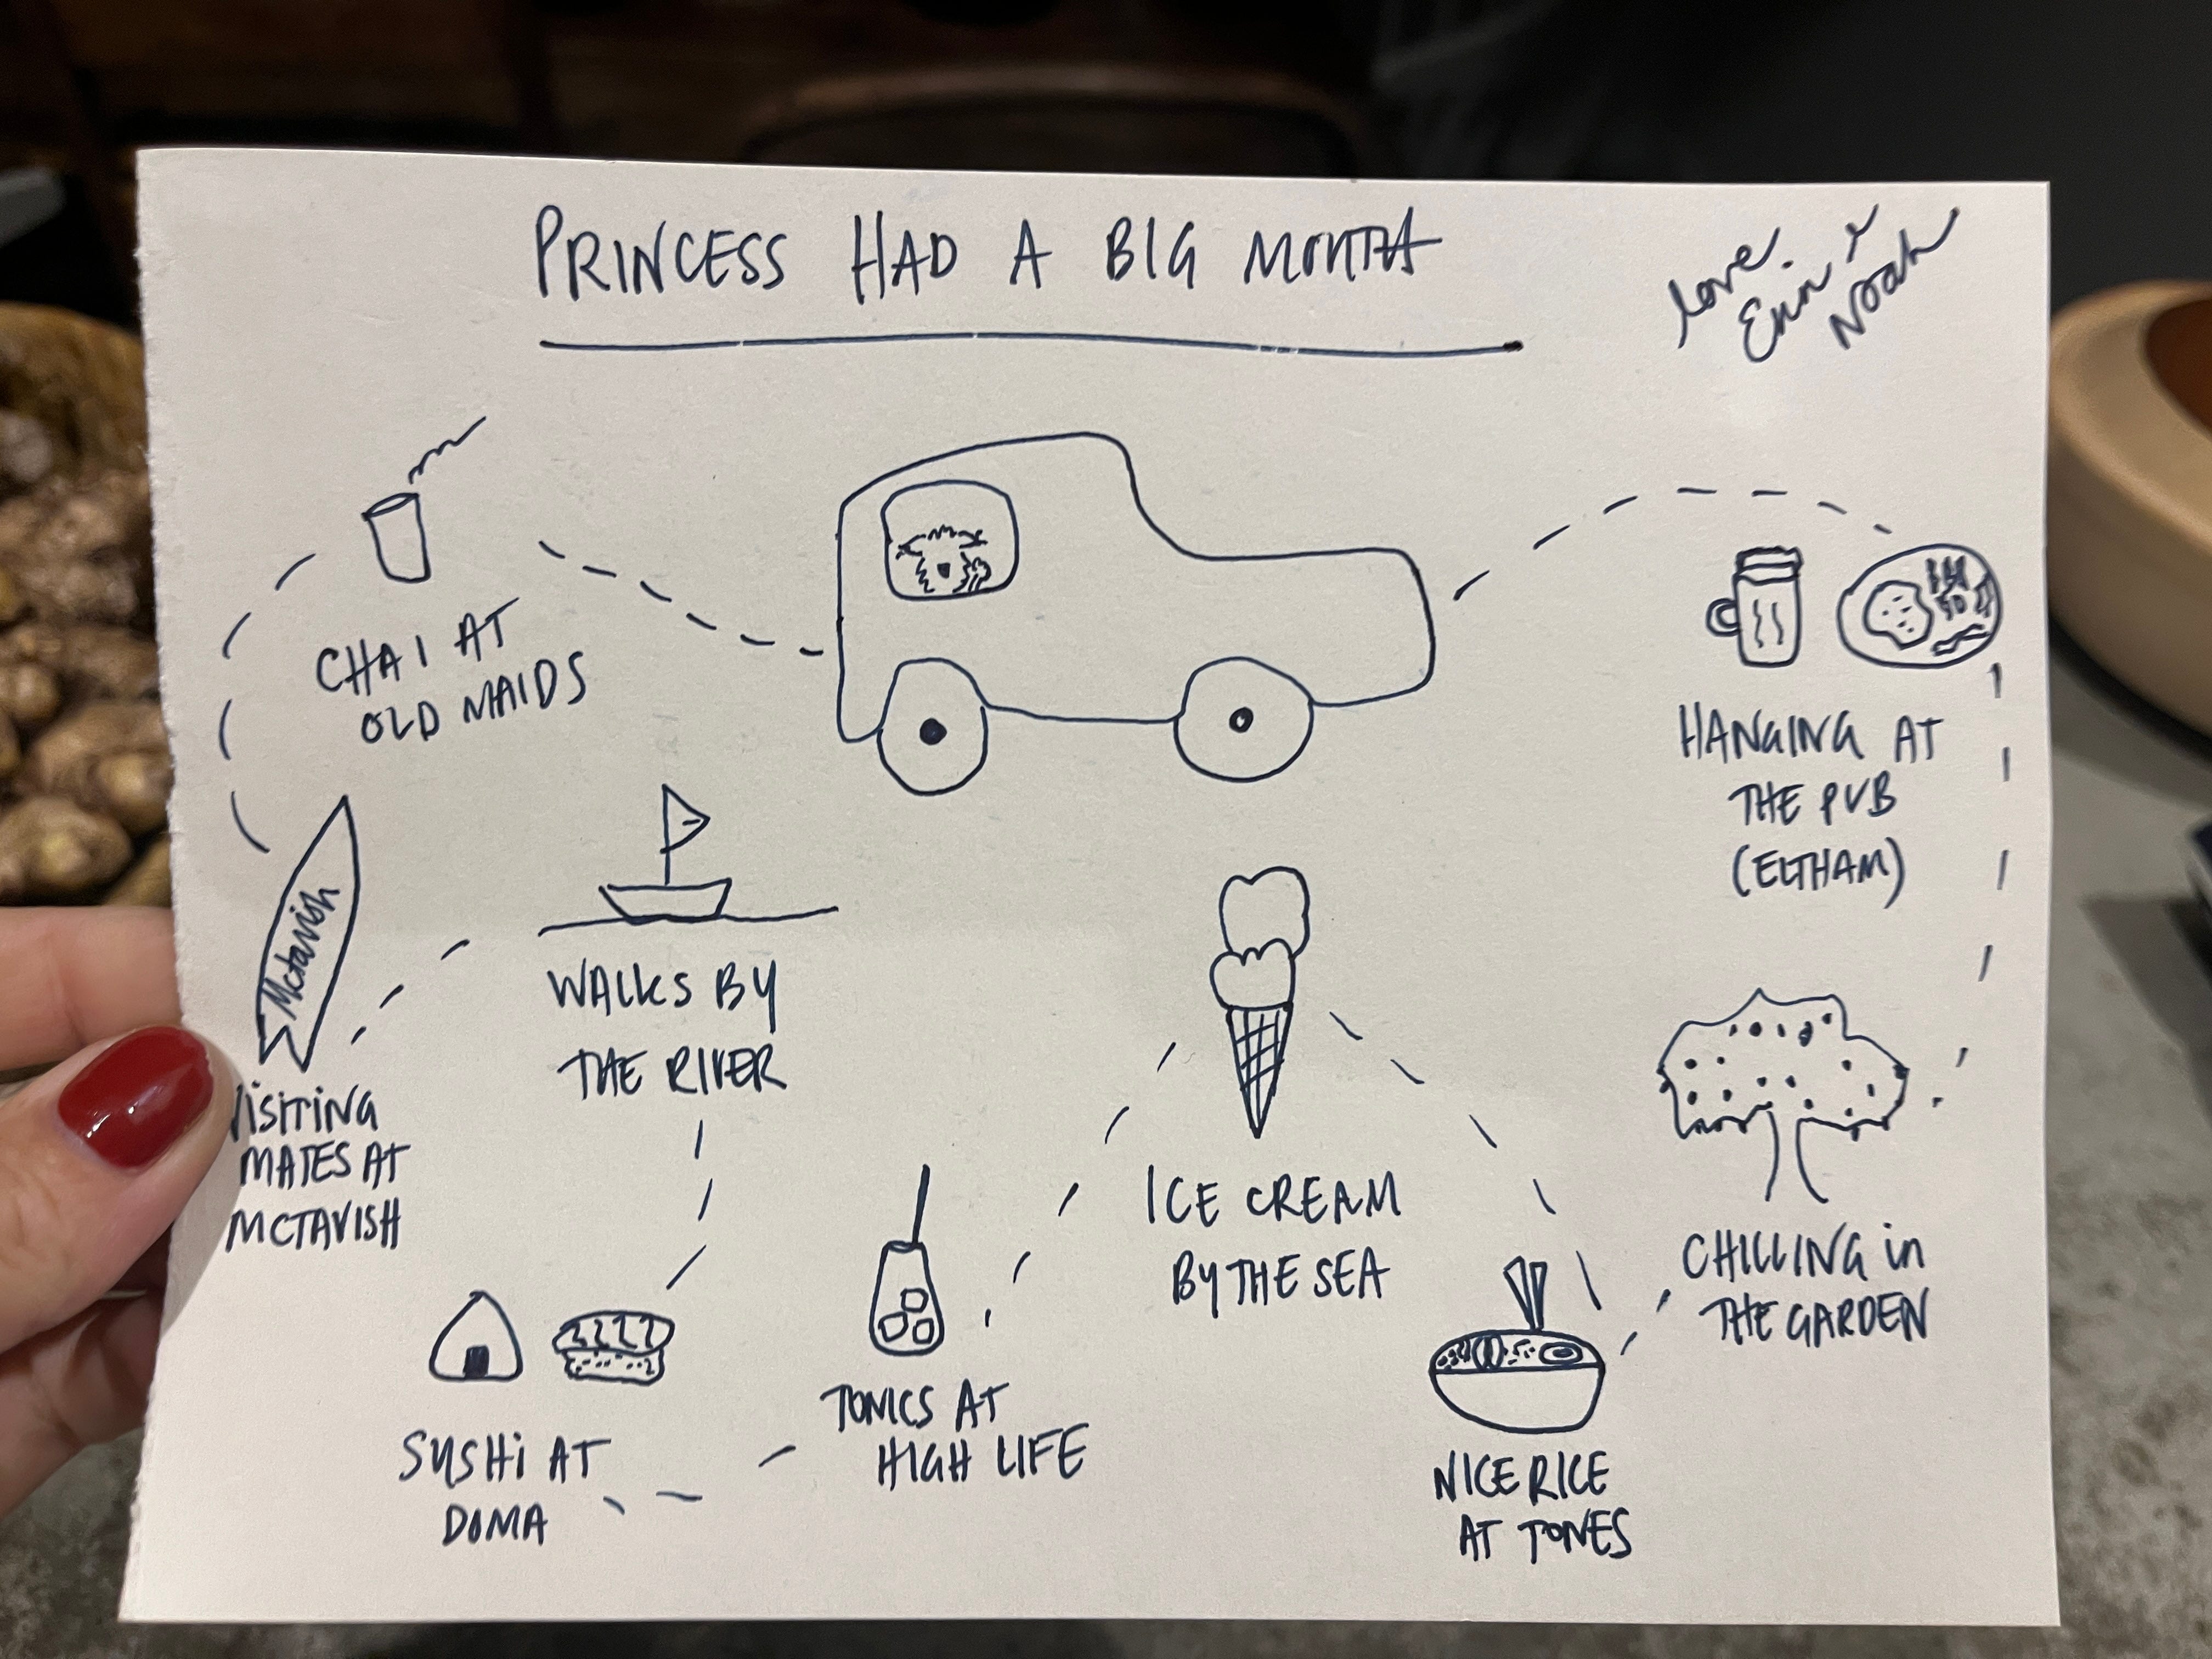 PRINCESS HAD A BIG MONTH
love.
Erin &
Noah
CHAI AT
OLD MAIDS
HANGING AT
THE PUB
(ELTHAM)
Mctavish
VISITING
MATES AT
MCTAVISH
WALKS BY
THE RIVER
ICE CREAM
BY THE SEA
CHILLING in
THE GARDEN
SUSHi AT
DOMA
TONICS AT
HIGH LIFE
NICE RICE
AT TONES